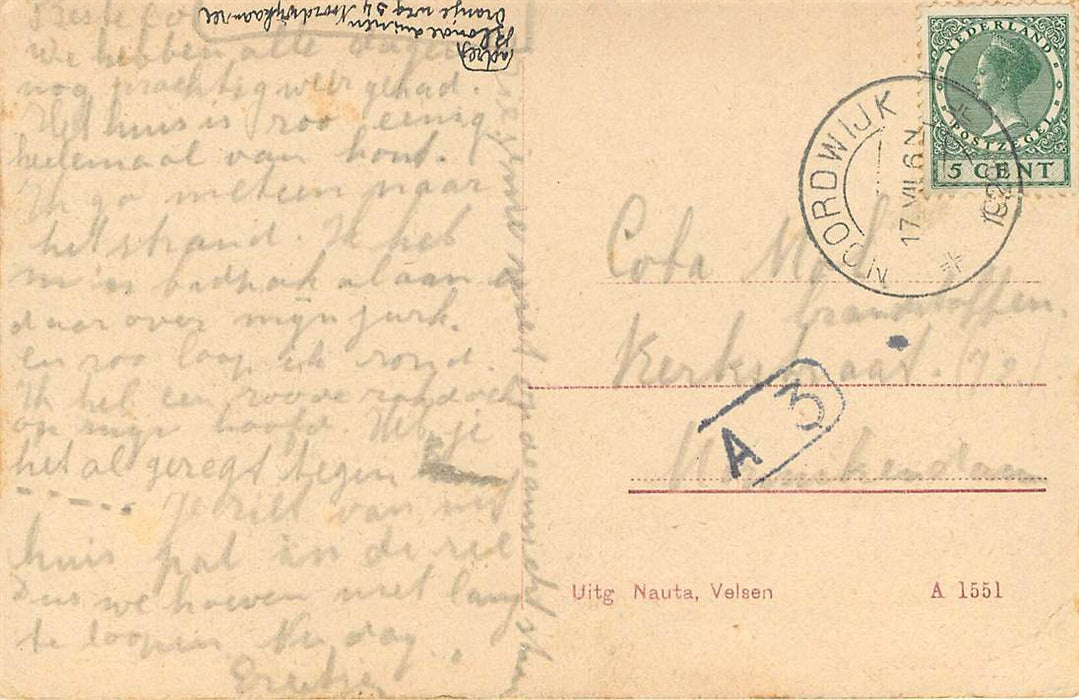 Beste
We hebben alle dagen
nog prachtig weer gehad.
Het huis is zoo eenig
heelemaal van hout.
Ik ga meteen naar
het strand. Ik heb
m'n badpak al aan
daar over mijn jurk.
en zoo loop ik rond.
Ik heb een roode
op mijn hoofd. Heb je
het al gezegt tegen
Je ziet van ons
huis pal in de zee
Dus we hoeven niet lang
te loopen Nu dag
adres
Blonde duinen
Oranje weg 34 Noordwijk aan zee
NEDERLAND
POSTZEGEL
5 CENT
NOORDWIJK
17 VII 6 N
Coba
brandstoffen.
Kerkstraat. (72)
Monnikendam
A 3
Uitg Nauta, Velsen
A 1551